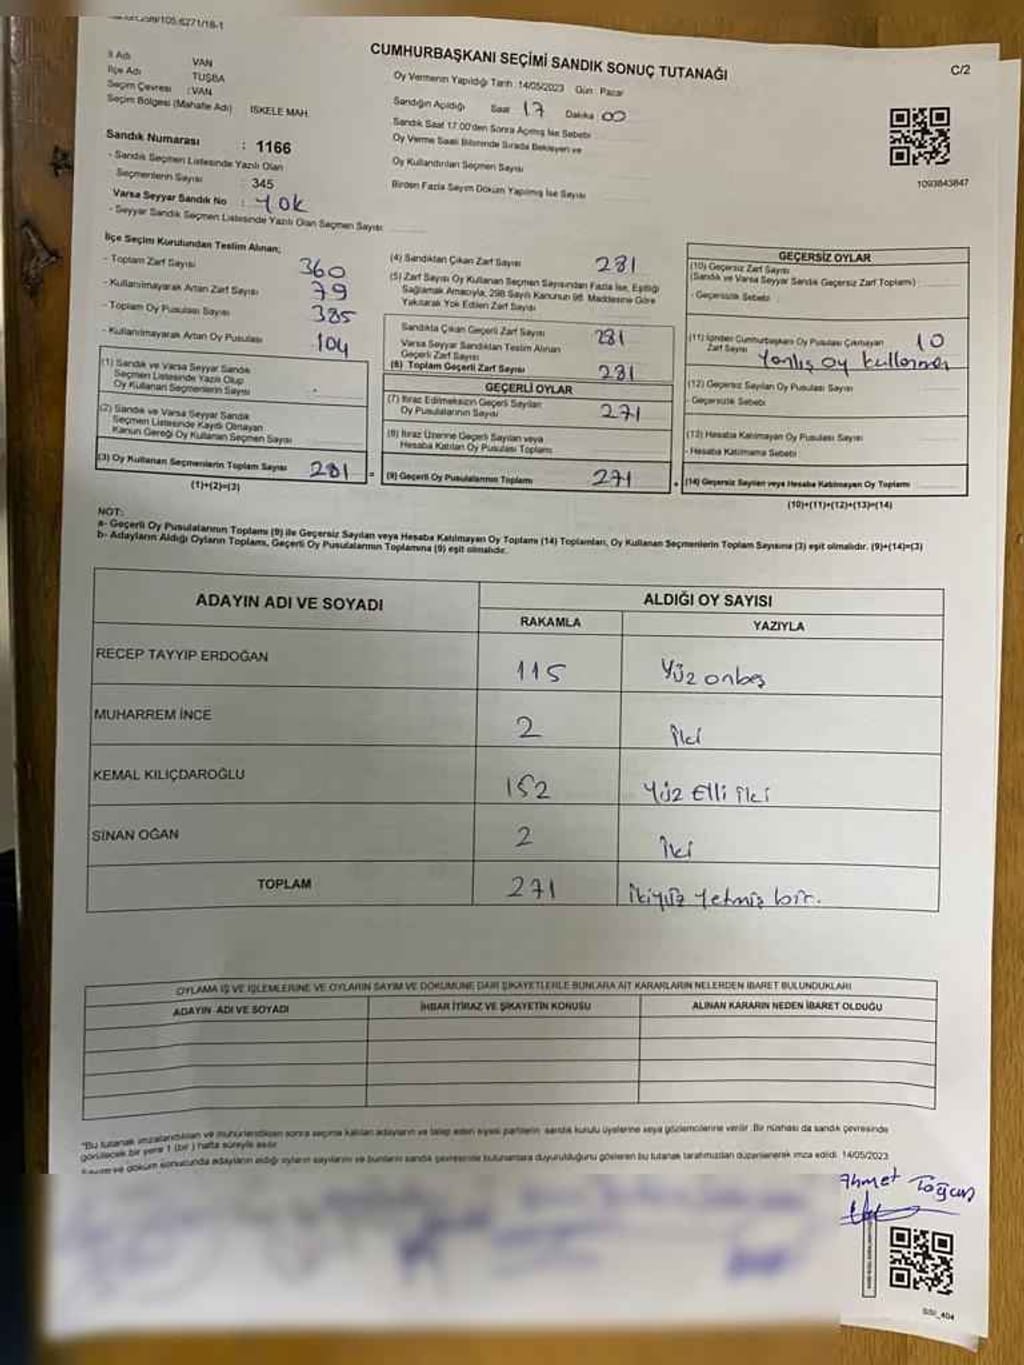 CUMHURBAŞKANI SEÇİMİ SANDIK SONUÇ TUTANAĞI
C/2
İl Adı VAN
İlçe Adı TUŞBA
Seçim Çevresi : VAN
Seçim Bölgesi (Mahalle Adı) İSKELE MAH.
Oy Vermenin Yapıldığı Tarih : 14/05/2023 Gün : Pazar
Sandığın Açıldığı Saat 17 Dakika : 00
Sandık Saat 17:00'den Sonra Açılmış İse Sebebi
Oy Verme Saati Bitiminde Sırada Bekleyen ve
Oy Kullandırılan Seçmen Sayısı
Birden Fazla Sayım Döküm Yapılmış İse Sayısı
1093843847
Sandık Numarası : 1166
- Sandık Seçmen Listesinde Yazılı Olan
Seçmenlerin Sayısı : 345
Varsa Seyyar Sandık No : Yok
- Seyyar Sandık Seçmen Listesinde Yazılı Olan Seçmen Sayısı
İlçe Seçim Kurulundan Teslim Alınan;
- Toplam Zarf Sayısı 360
- Kullanılmayarak Artan Zarf Sayısı 79
- Toplam Oy Pusulası Sayısı 385
- Kullanılmayarak Artan Oy Pusulası 104
(1) Sandık ve Varsa Seyyar Sandık
Seçmen Listesinde Yazılı Olup
Oy Kullanan Seçmenlerin Sayısı
(2) Sandık ve Varsa Seyyar Sandık
Seçmen Listesinde Kayıtlı Olmayan
Kanun Gereği Oy Kullanan Seçmen Sayısı
(3) Oy Kullanan Seçmenlerin Toplam Sayısı 281
(1)+(2)=(3)
(4) Sandıktan Çıkan Zarf Sayısı 281
(5) Zarf Sayısı Oy Kullanan Seçmen Sayısından Fazla İse, Eşitliği
Sağlamak Amacıyla, 298 Sayılı Kanunun 98. Maddesine Göre
Yakılarak Yok Edilen Zarf Sayısı
Sandıkta Çıkan Geçerli Zarf Sayısı 281
Varsa Seyyar Sandıktan Teslim Alınan
Geçerli Zarf Sayısı
(6) Toplam Geçerli Zarf Sayısı 281
GEÇERLİ OYLAR
(7) İtiraz Edilmeksizin Geçerli Sayılan
Oy Pusulalarının Sayısı 271
(8) İtiraz Üzerine Geçerli Sayılan veya
Hesaba Katılan Oy Pusulası Toplamı
(9) Geçerli Oy Pusulalarının Toplamı 271
GEÇERSİZ OYLAR
(10) Geçersiz Zarf Sayısı
(Sandık ve Varsa Seyyar Sandık Geçersiz Zarf Toplamı)
- Geçersizlik Sebebi :
(11) İçinden Cumhurbaşkanı Oy Pusulası Çıkmayan
Zarf Sayısı 10
Yanlış oy kullanma
(12) Geçersiz Sayılan Oy Pusulası Sayısı
- Geçersizlik Sebebi
(13) Hesaba Katılmayan Oy Pusulası Sayısı
- Hesaba Katılmama Sebebi
(14) Geçersiz Sayılan veya Hesaba Katılmayan Oy Toplamı
(10)+(11)+(12)+(13)=(14)
NOT:
a- Geçerli Oy Pusulalarının Toplamı (9) ile Geçersiz Sayılan veya Hesaba Katılmayan Oy Toplamı (14) Toplamları, Oy Kullanan Seçmenlerin Toplam Sayısına (3) eşit olmalıdır. (9)+(14)=(3)
b- Adayların Aldığı Oyların Toplamı, Geçerli Oy Pusulalarının Toplamına (9) eşit olmalıdır.
ADAYIN ADI VE SOYADI ALDIĞI OY SAYISI
RAKAMLA YAZIYLA
RECEP TAYYIP ERDOĞAN 115 Yüz onbeş
MUHARREM İNCE 2 İki
KEMAL KILIÇDAROĞLU 152 Yüz Elli iki
SİNAN OĞAN 2 İki
TOPLAM 271 ikiyüz Yetmiş bir.
OYLAMA İŞ VE İŞLEMLERİNE VE OYLARIN SAYIM VE DÖKÜMÜNE DAİR ŞİKAYETLERLE BUNLARA AİT KARARLARIN NELERDEN İBARET BULUNDUKLARI
ADAYIN ADI VE SOYADI İHBAR İTİRAZ VE ŞİKAYETİN KONUSU ALINAN KARARIN NEDEN İBARET OLDUĞU
*Bu tutanak imzalandıktan ve mühürlendikten sonra seçime katılan adayların ve talep eden siyasi partilerin sandık kurulu üyelerine veya gözlemcilerine verilir. Bir nüshası da sandık çevresinde
görülecek bir yere 1 (bir) hafta süreyle asılır.
döküm sonucunda adayların aldığı oyların sayılarını ve bunların sandık çevresinde bulunanlara duyurulduğunu gösteren bu tutanak tarafımızdan düzenlenerek imza edildi. 14/05/2023
Ahmet Toğan
SSI_404